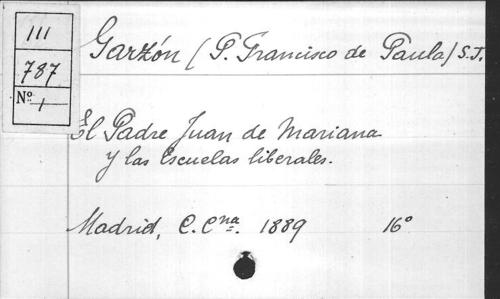 III
787
Nº 1
Garzón (P. Francisco de Paula) S.J.
El Padre Juan de Mariana
y las Escuelas liberales.
Madrid, C. Cña. 1889 16º